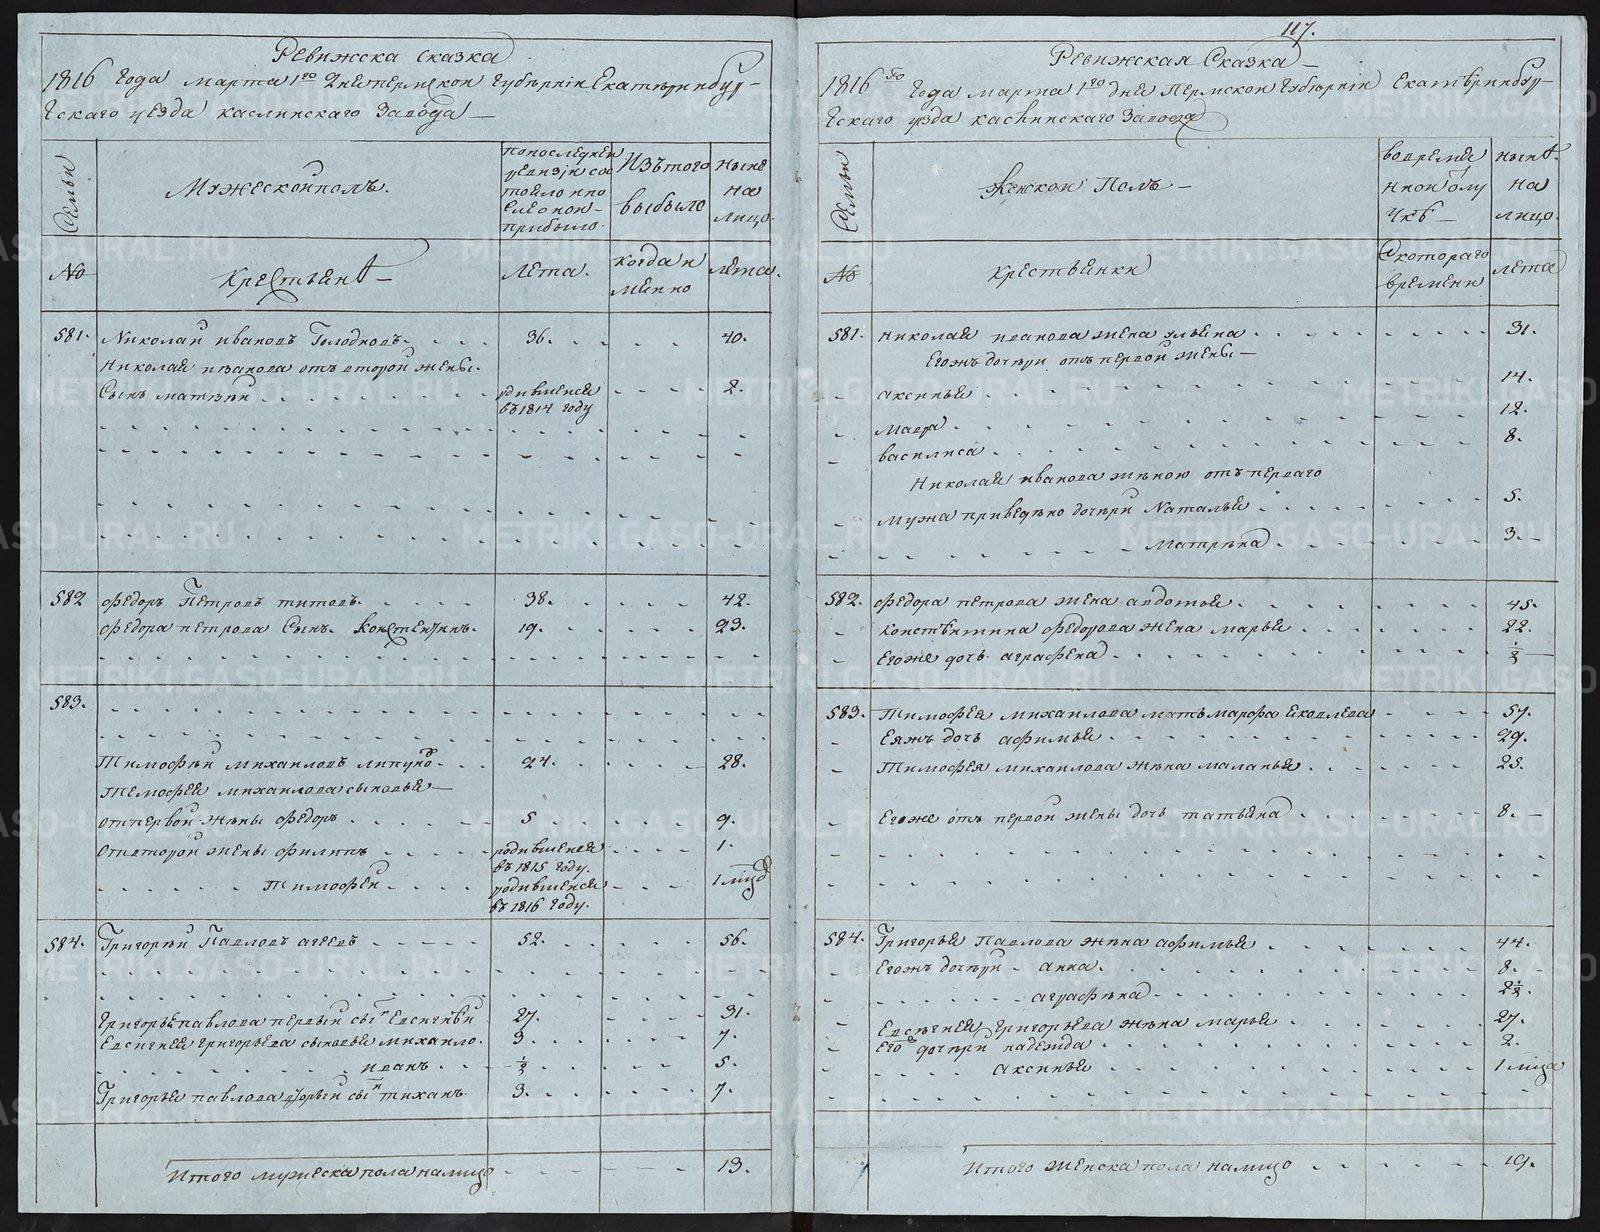 117.
Ревижска сказка
1816 Года марта 1го Дне пермской губернiи Екатеринбур-
гскаго уезда каслинскаго Завода
Семьи
Мужескои полъ.
попоследней
ревизiи со
тояло и по
сле оной
прибыло.
Изъ того
выбыло
ныне
на
лицо.
No
Крестьянѣ
Лета.
когда и
менно
лета.
581. Николай ивановъ Голодновъ. 36. 40.
Николая иванова отъ второй жены.
Сынъ матвѣй родившейся 2.
въ 1814 году
582 Федоръ Петровъ титовъ. 38. 42.
Федора петрова Сынъ. Констентинъ. 19. 23.
583.
Тимофѣй михаиловъ 24. 28.
Темофея михаилова сыновья
отпервой жены Федоръ 5 9.
Отвторой жены филипъ родившейся 1.
въ 1815 году.
Тимофей родившейся
въ 1816 году.
584. Григорѣй Павловъ агеевъ 52. 56.
Григорья павлова первый сынъ Евсигнѣй 27. 31.
Евсигнея григорьева сыновья михаило. 3. 7.
иванъ 1/2 5.
Григорья павлова вторый сынъ тиханъ. 3. 7.
Итого мужеска пола налицо 13.
Ревижская Сказка
1816го Года марта 1го дня Пермской Губернiи Екатѣринбур-
гскаго уезда каслинскаго Завода
Семьи
Женской Полъ
во время
на
лицо.
No
крестьянки
Скотораго
времени
лета
581. Николая иванова жена ульяна 31.
Егожъ дочери отъ первой жены
аксинья 14.
мавра 12.
василиса 8.
Николая иванова женою отъ перваго
мужа приведено дочери Наталья 5.
матрѣна 3.
582. Федора петрова жена авдотья 45.
констентина федорова жена марья 22.
Егоже дочь аграфена 1/2
583. Тимофея михаилова мать марфа яковлева 57.
Еяжъ дочь афимья 29.
Тимофея михаилова жѣна маланья 25.
Егоже отъ первой жены дочь татьяна 8.
584. Григорья Павлова жѣна афимья 44.
Егожъ дочѣри анна. 8.
аграфѣна 2 1/2.
Евсѣгнея Григорьева жѣна марья 27.
Его дочѣри надежда 2.
аксинья
Итого женска пола налицо 19.